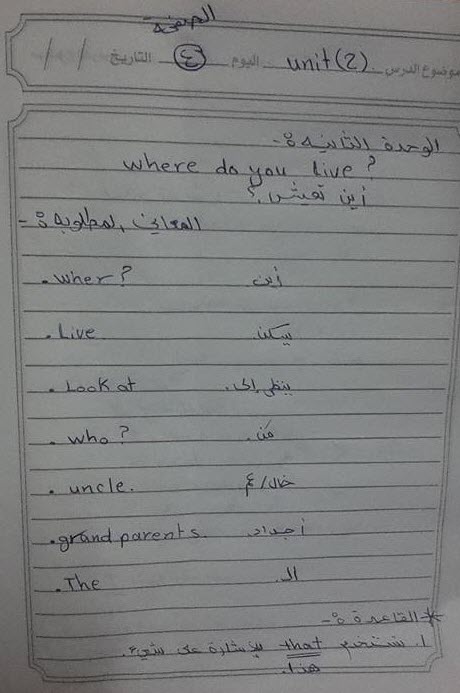 الصفحة
موضوع الدرس unit (2) اليوم ٤ التاريخ / /
الوحدة الثانيه :-
where do you Live ?
أين تعيش ؟
المعاني المطلوبه :-
. wher ? أين
. Live يسكن
. Look at ينظر إلى.
. who ? من.
. uncle. خال/عم
. grand parents. أجداد
. The الـ
* القاعدة :-
١. نستخدم that للإشارة على شيء.
هذا.